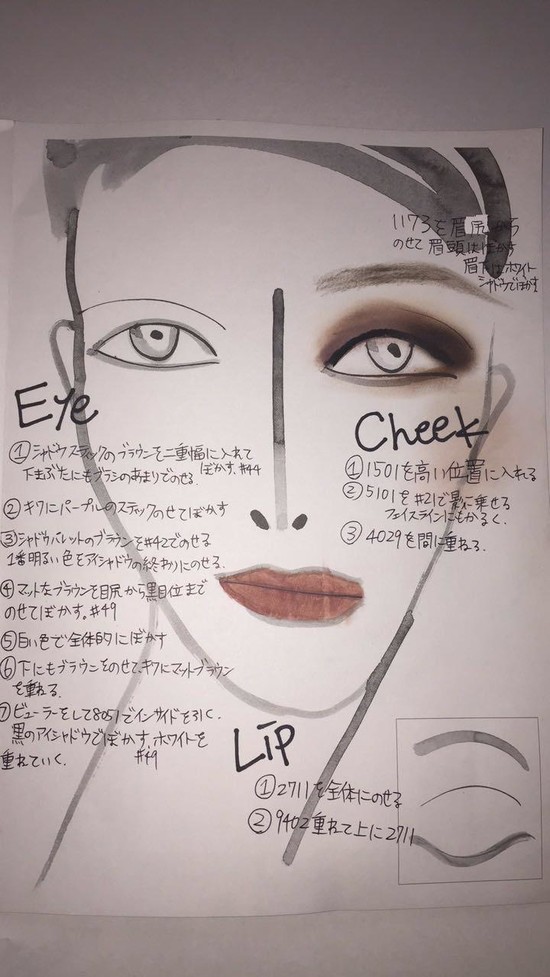 1173を眉尻から
のせて 眉頭はぼかす
眉下はホワイト
シャドウでぼかす
Eye
① シャドウスティックのブラウンを二重幅に入れて
ぼかす。#44
下まぶたにもブラシのあまりでのせる。
② キワにパープルのスティックのせてぼかす
③ シャドウパレットのブラウンを#42でのせる
1番明るい色をアイシャドウの終わりにのせる。
④ マットなブラウンを目尻から黒目位まで
のせてぼかす。#49
⑤ 白い色で全体的にぼかす
⑥ 下にもブラウンをのせて、キワにマットブラウン
を重ねる。
⑦ ビューラーをして8051でインサイドを引く。
黒のアイシャドウでぼかす。ホワイトを
重ねていく。 #49
Cheek
① 1501を高い位置に入れる
② 5101を#21で影に乗せる
フェイスラインにもかるく。
③ 4029を間に重ねる。
Lip
① 2711を全体にのせる
② 9402重ねて上に2711